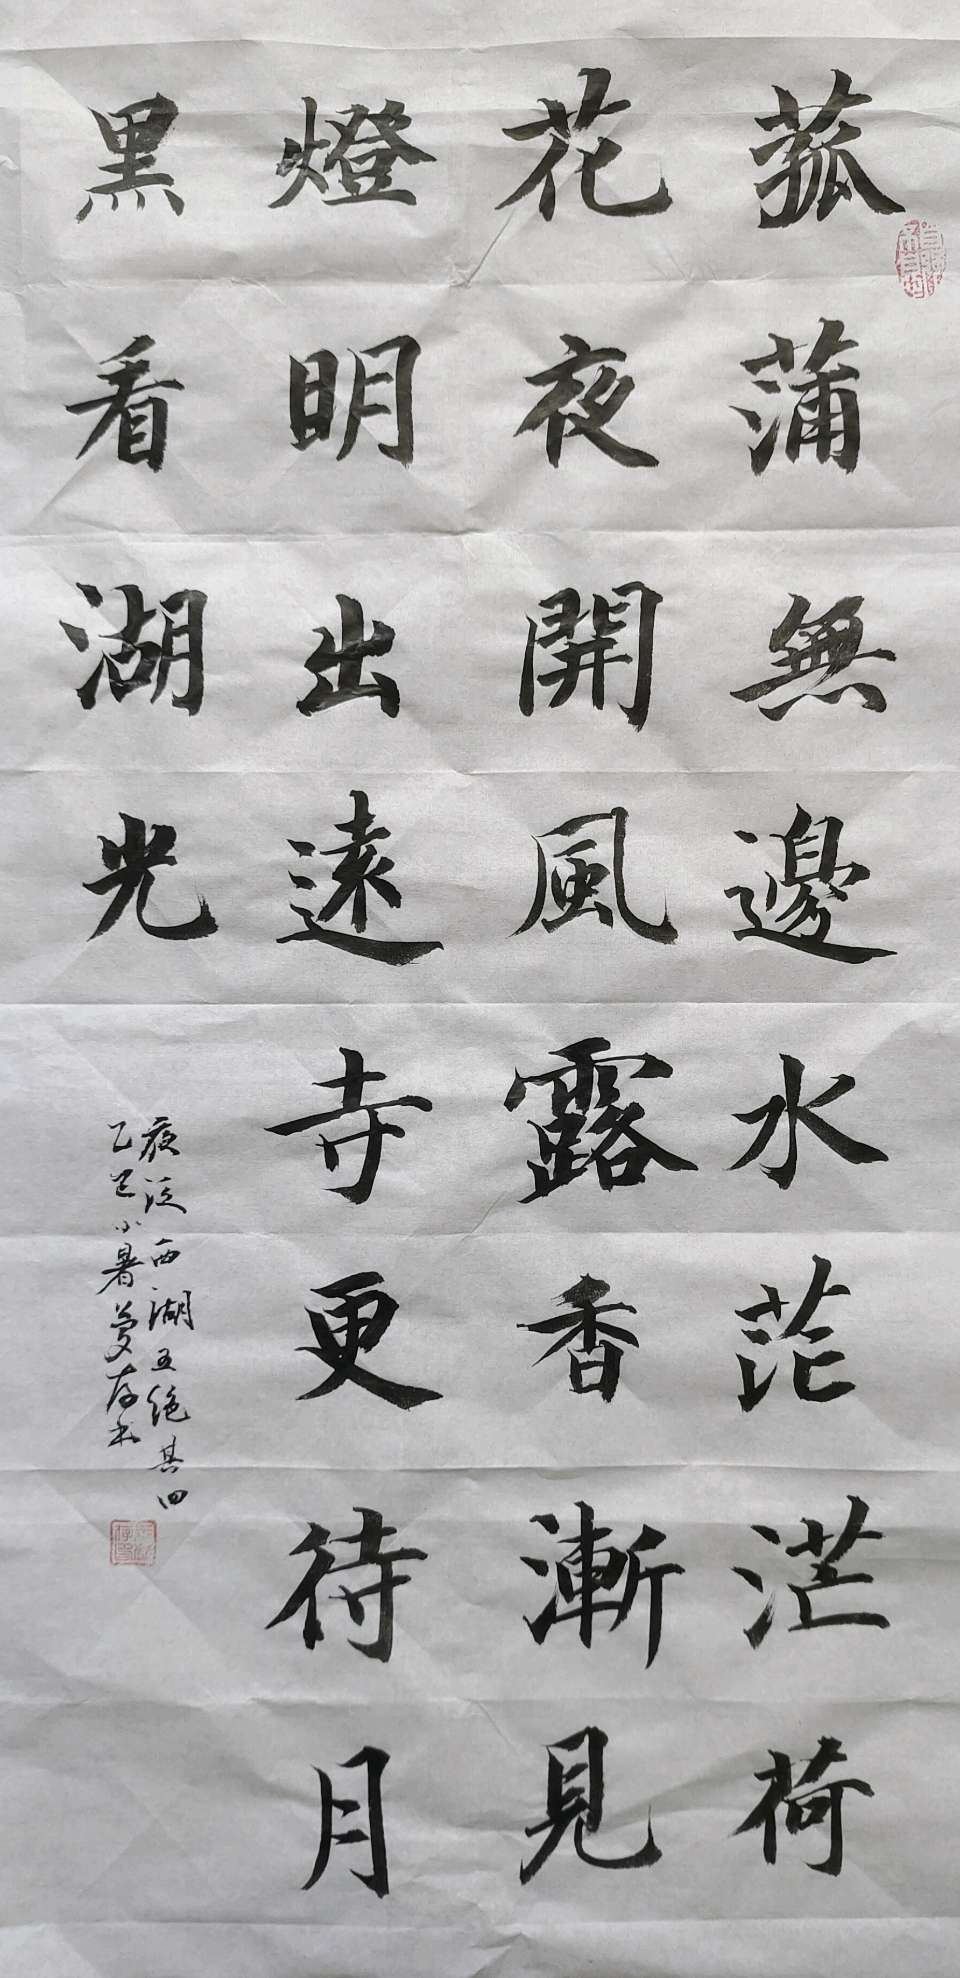 菰蒲無邊水茫茫荷
花夜開風露香漸見
燈明出遠寺更待月
黑看湖光
夜泛西湖五绝其四
乙巳小暑夢存书